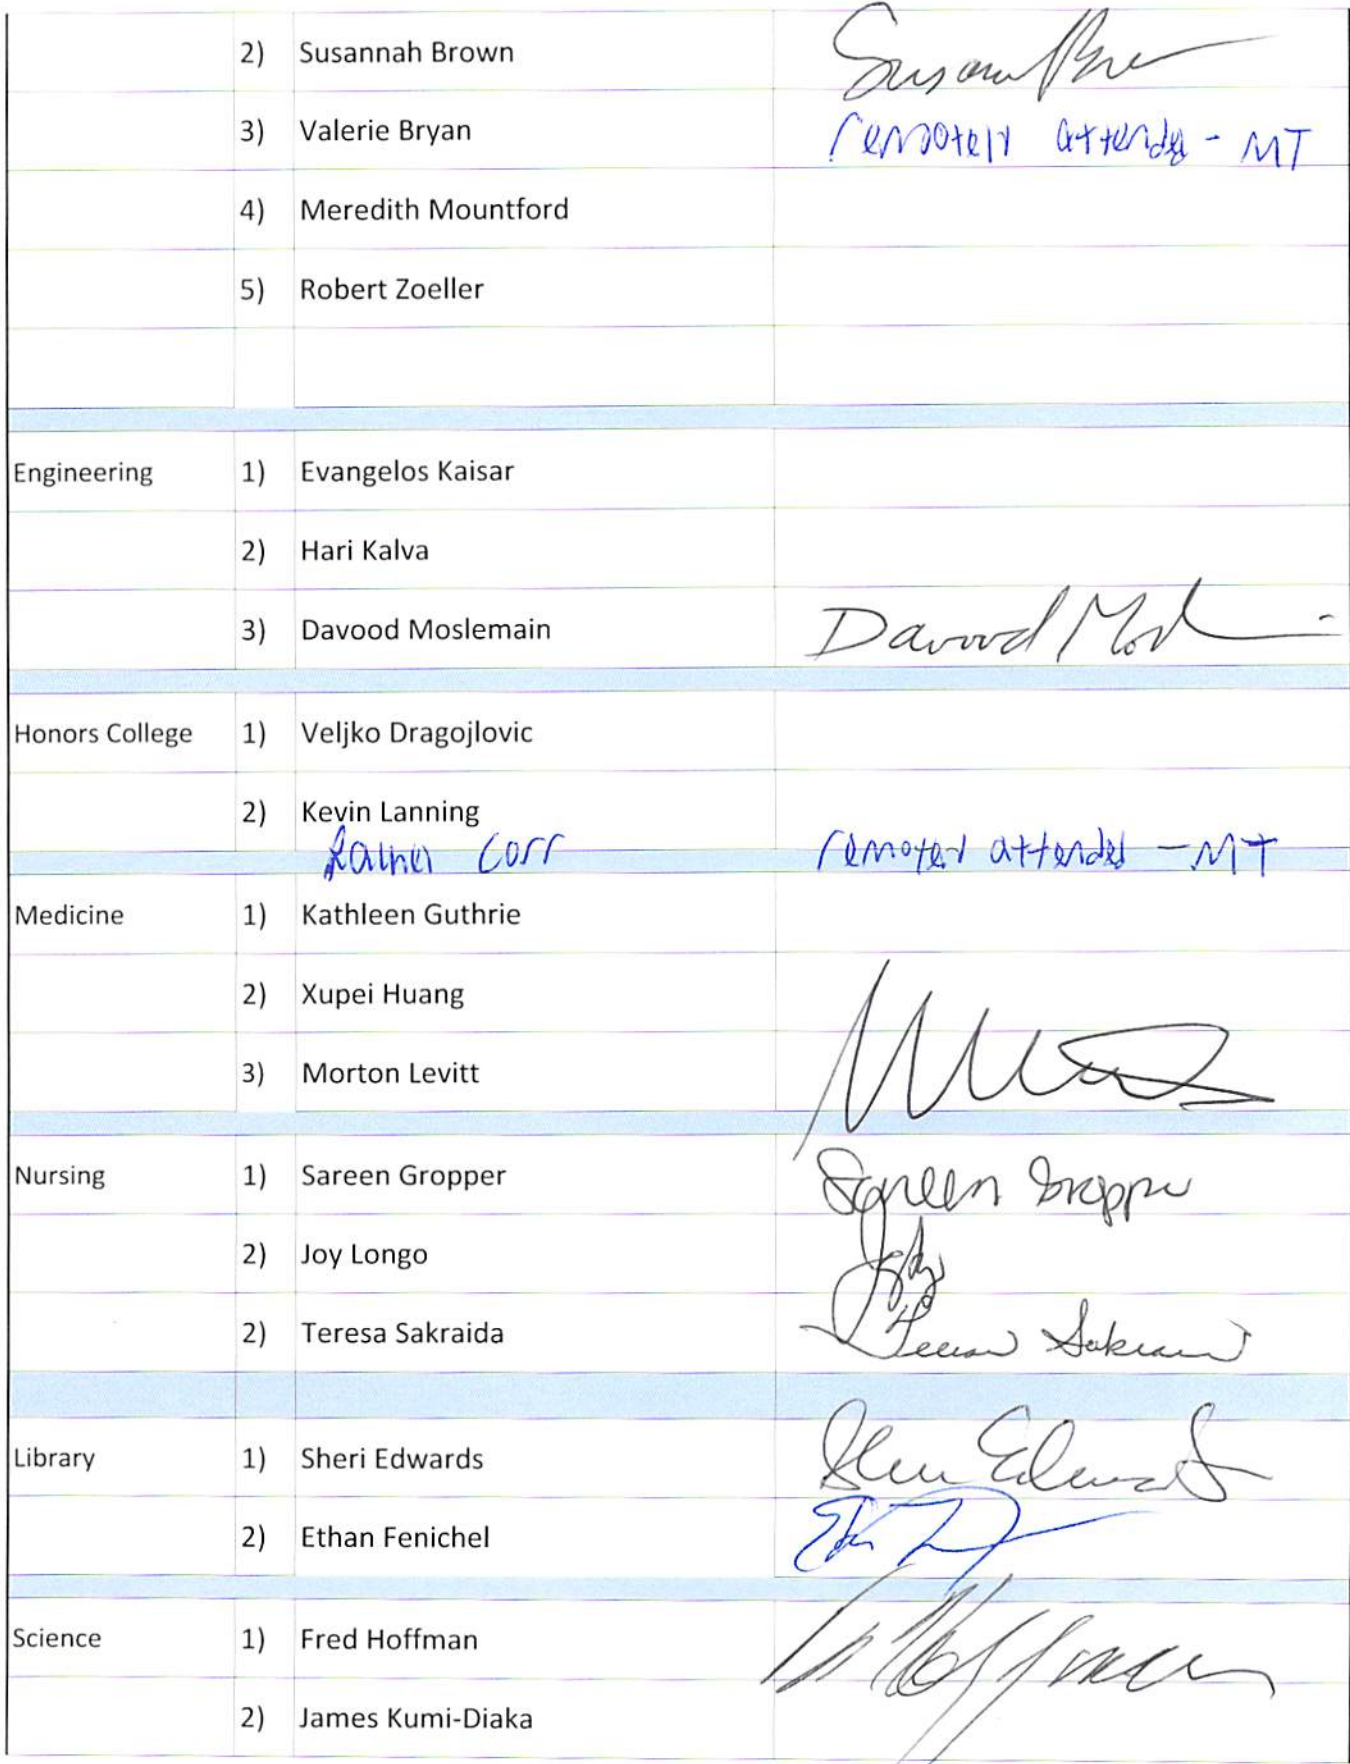 2) Susannah Brown Susan Bro
3) Valerie Bryan remotely attended - MT
4) Meredith Mountford
5) Robert Zoeller
Engineering 1) Evangelos Kaisar
2) Hari Kalva
3) Davood Moslemain Davood Mosl
Honors College 1) Veljko Dragojlovic
2) Kevin Lanning
Corr remotely attended - MT
Medicine 1) Kathleen Guthrie
2) Xupei Huang
3) Morton Levitt
Nursing 1) Sareen Gropper Sareen Gropper
2) Joy Longo
2) Teresa Sakraida Teresa Sakraida
Library 1) Sheri Edwards Sheri Edwards
2) Ethan Fenichel
Science 1) Fred Hoffman Hoffman
2) James Kumi-Diaka